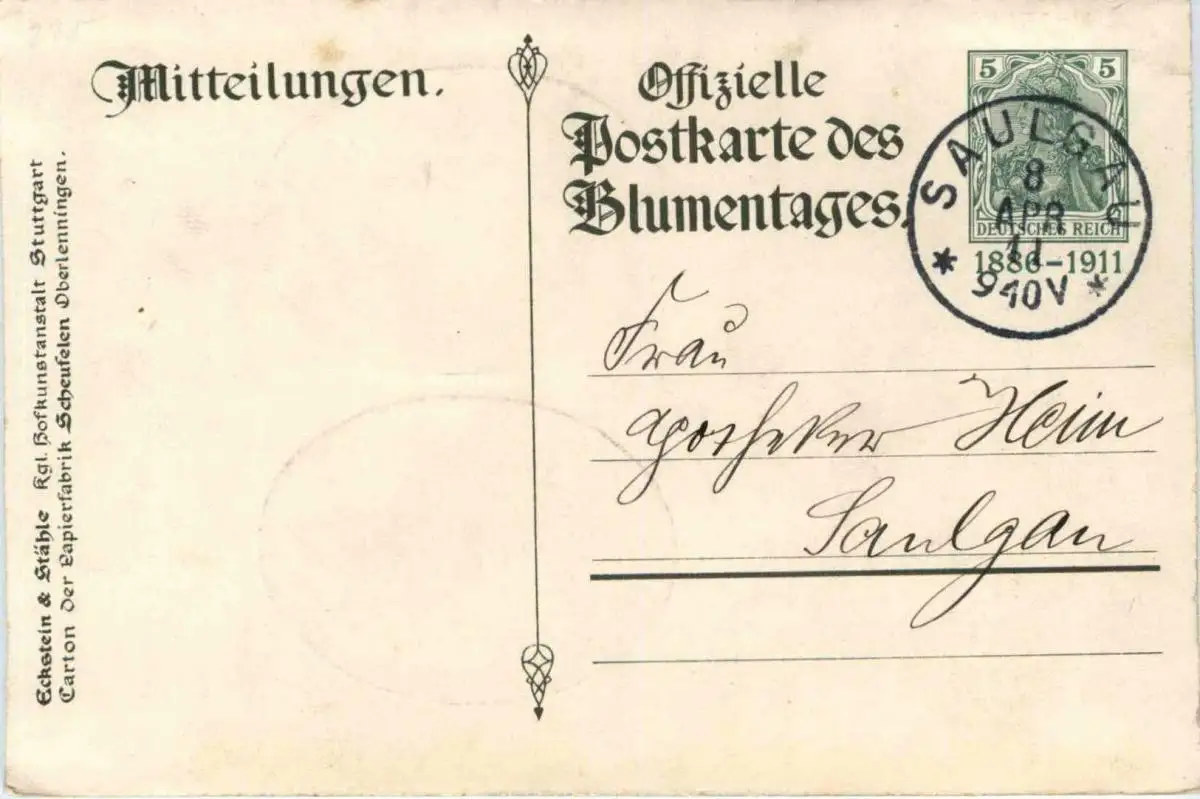 Mitteilungen.
Offizielle
Postkarte des
Blumentages.
5 5
DEUTSCHES REICH
1886-1911
SAULGAU
8
APR
11
940V
Frau
Apotheker Heim
Saulgau
Eckstein & Stähle Kgl. Hofkunstanstalt Stuttgart
Carton der Papierfabrik Scheufelen Oberlenningen.